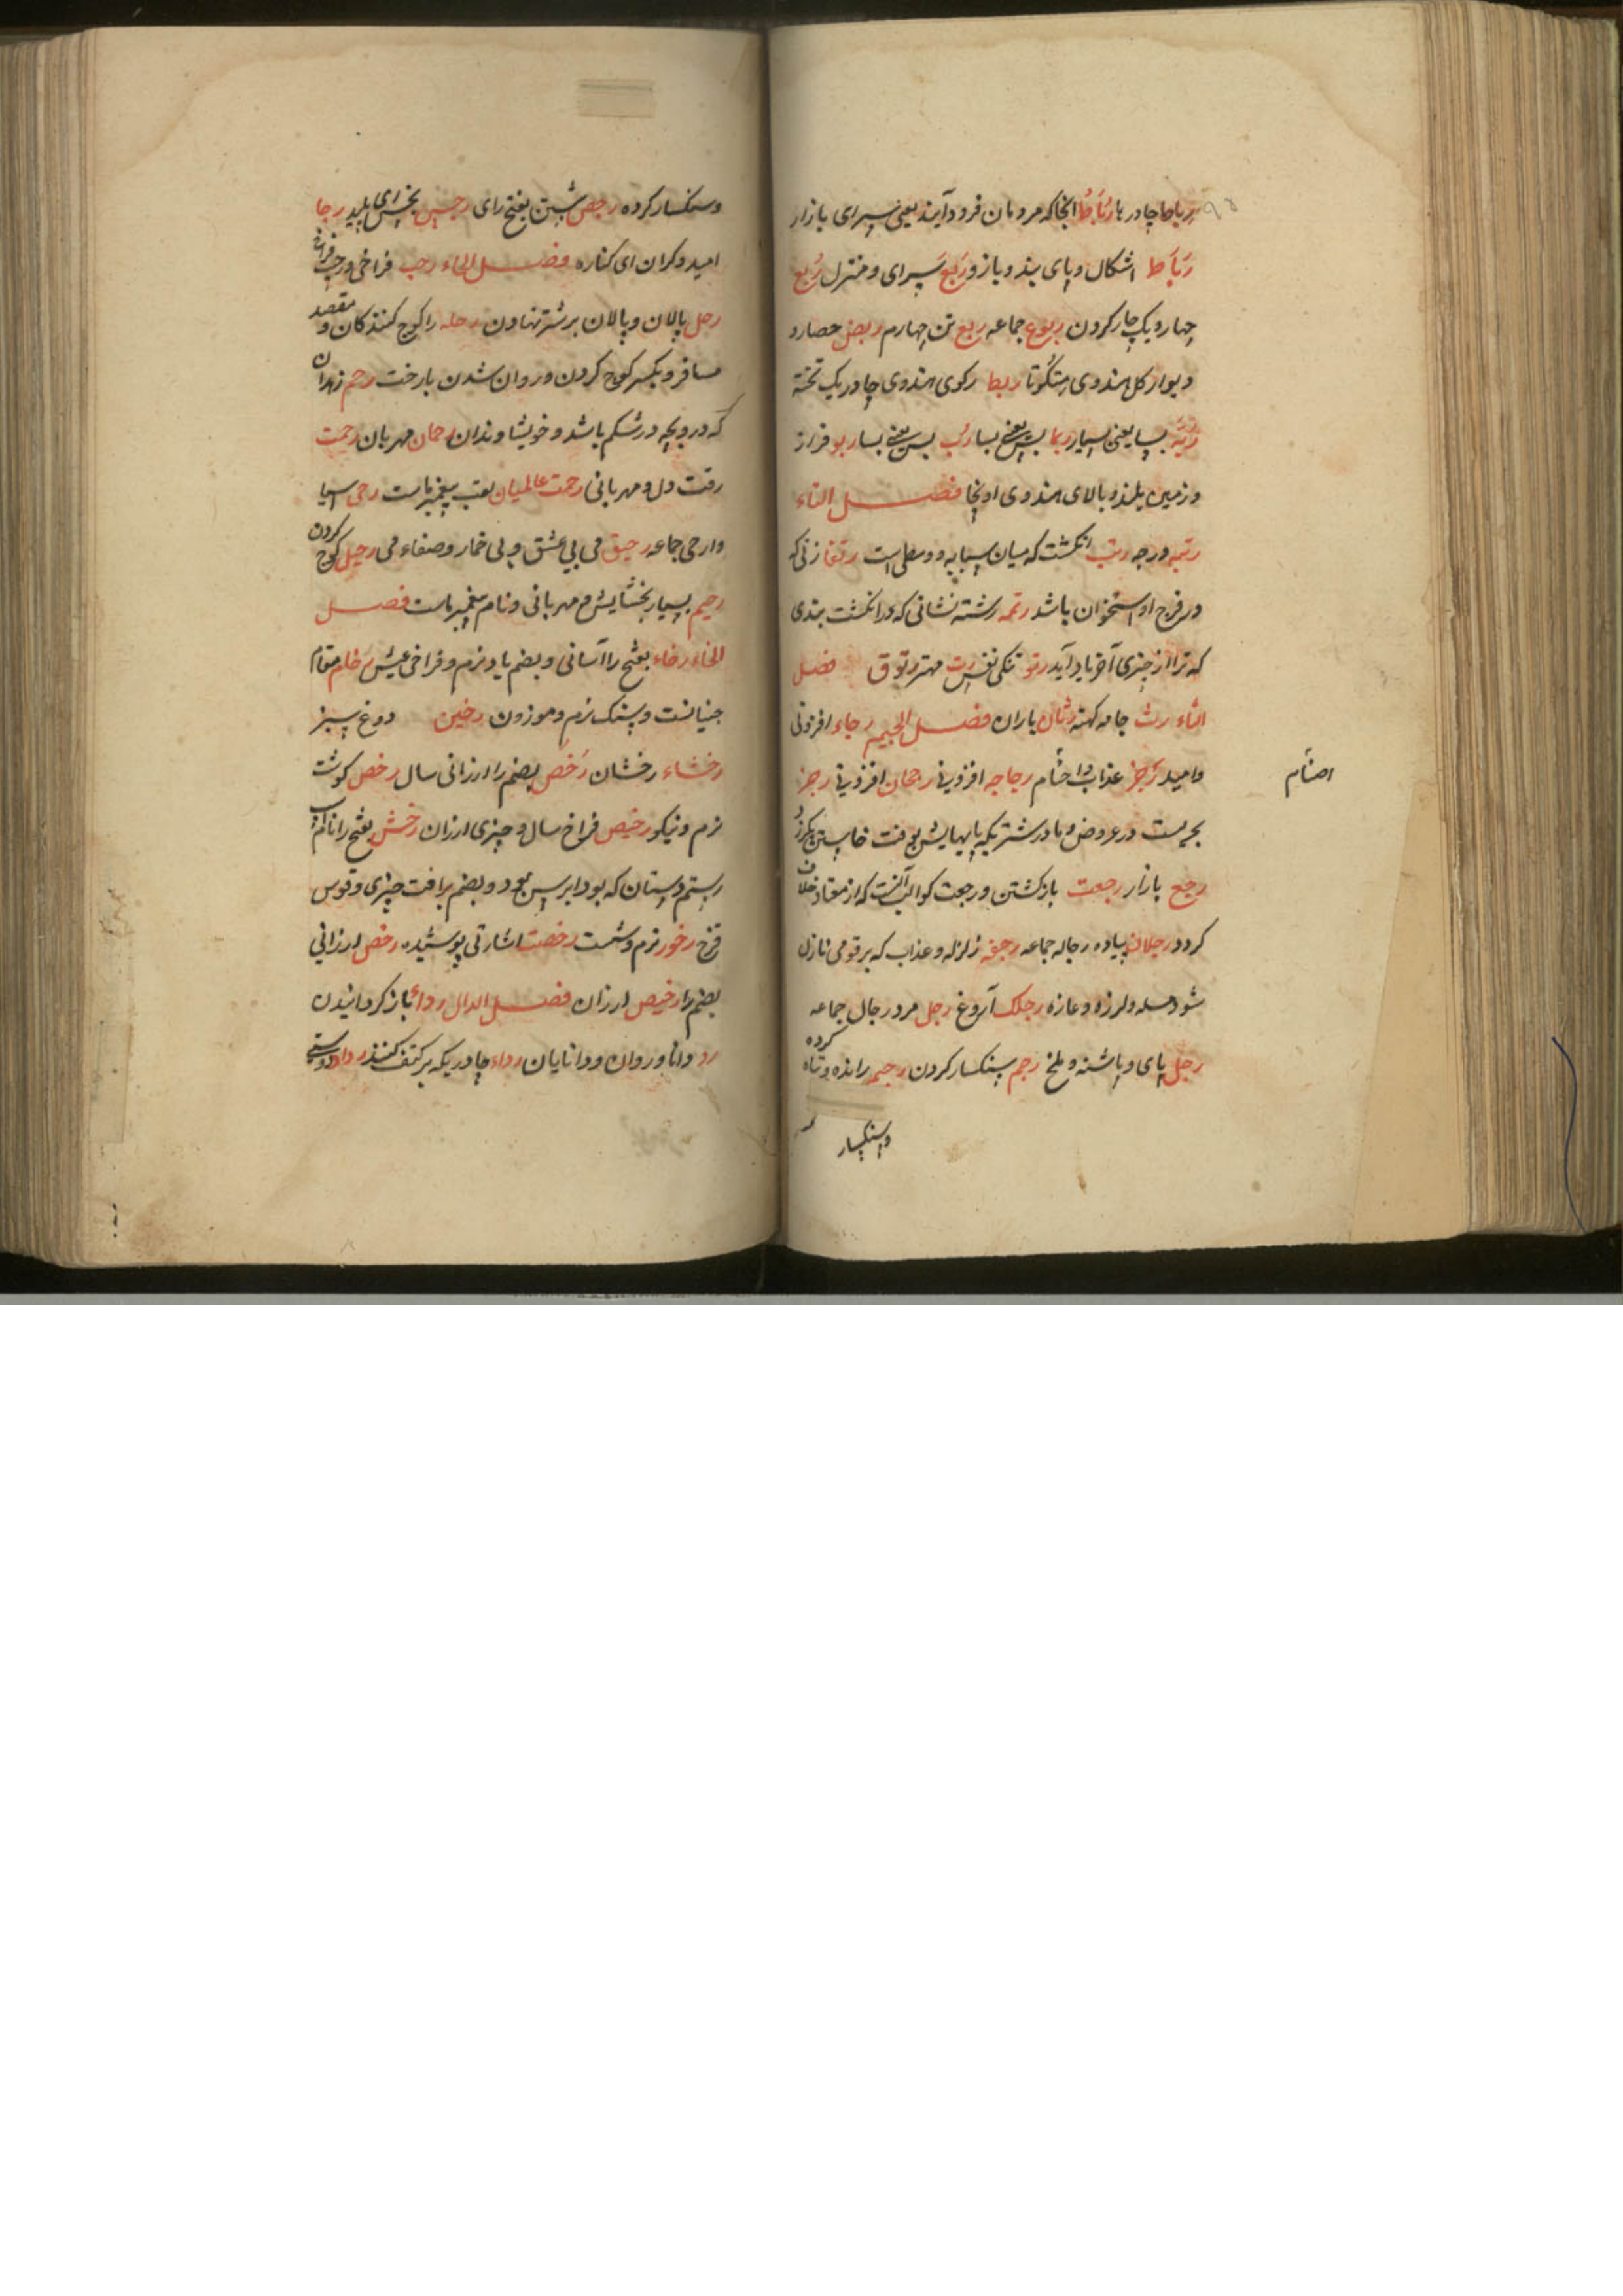 ریاط چادرها رباط انجا که مردمان فرود آیند یعنی سرای بازار
رباط اشکال و پای بند و باز و ربع سرای و منزل ربع
چهار و یک چار کردن ربوع جماعه ربع تن چهارم ربض حصار و
دیوار کل هندوی ربط رکوی هندوی چادر یک تخته
بسا یعنی بسیار ربما بس یعنی بسا رب بس یعنی بسا ربو فراز
و زمین بلند و بالای هندوی اونچا فصل التاء
رتبه درجه رتب انکشت که میان سبابه و وسطی است رتقا زنی که
در فرج او استخوان باشد رتمه رشته نشانی که در انکشت بندی
که ترا از چیزی آخر یاد آید رتو تنکی نفس رت مهتر رتوق فصل
الثاء رث جامه کهنه رثان باران فصل الجیم رجاء افزونی
و امید رجز عذاب رجاجه افزونی رجحان افزونی رجز
اصنام
بحریست در عروض و مادر شتر یکه پایهایش بوقت خاستن
رجع بازار رجعت بازکشتن و رجعت کواکب آنست که از معتاد خلاف
کردد رجلان پیاده رجاله جماعه رجفه زلزله و عذاب که بر قومی نازل
شود و لرزه رجلک آروغ رجل مرد رجال جماعه
رجل پای و پاشنه و ملخ رجم سنکسار کردن رجیم رانده و تباه کرده
و سنکسار
و سنکسار کرده رجص بفتح رای رجس پلید رجا
امید و کران ای کناره فصل الحاء رحب فراخی و رحب فراخ
رحل پالان و پالان بر شتر نهادن رحله را کوچ کنندکان و مقصد
مسافر و یکسر کوچ کردن و روان شدن بارخت رحم زهدان
که درو بچه در شکم باشد و خویشاوندان رحمان مهربان رحمت
رقت دل و مهربانی رحمت عالمیان لقب پیغمبر ماست رحی اسیا
وارحی جماعه رحیق می بی غش و بی خمار و صفاء می رحیل کوچ کردن
رحیم بسیار بخشایش و مهربانی و نام پیغمبر ماست فصل
الخاء رخاء بفتح را آسانی و بضم باد نرم و فراخی عیش رخام مقام
و سنک نرم و موزون رخبین دوغ سبز
رخشاء رخشان رخص بضم را ارزانی سال رخص کوشت
نرم و نیکو رخیص فراخ سال و چیزی ارزان رخش بفتح را نام اسپ
رستم دستان که بود و بضم را چیزی و قوس
قزح رخور نرم و شست رخصت اشارتی پوشیده رخص ارزانی
بضم را رخیص ارزان فصل الدال رداء باز کردانیدن
رد دانا و روان و دانایان رداء چادریکه بر کتف کنند